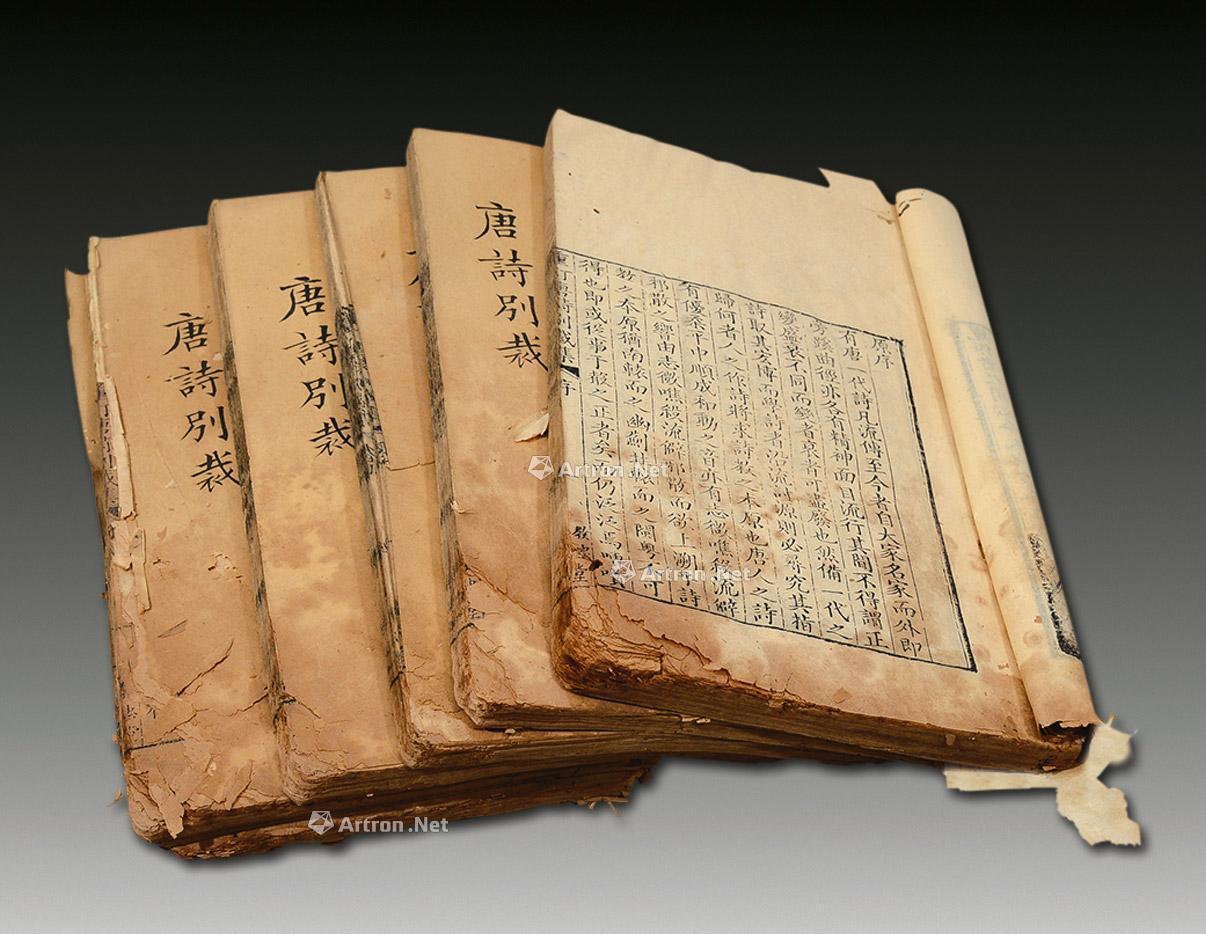 唐詩別裁
唐詩別裁
唐詩別裁
原序
有唐一代詩凡流傳至今者自大家名家而外即
旁蹊曲徑亦各有精神面目流行其間不得謂正
變盛衰不同而變者衰者可盡廢也然備一代之
詩取其宏博而學詩者沿流討源則必尋究其指
歸何者人之作詩將求詩教之本原也唐人之詩
有優柔平中順成和動之音亦有志微噍殺流僻
邪散之響由志微噍殺流僻邪散而欲上溯乎詩
教之本原猶南轅而之幽薊北轅而之閩粵不可
得也即或從事于之正者矣而仍泛泛焉
重訂唐詩別裁集 序
Artron.Net
Artron.Net
Artron.Net